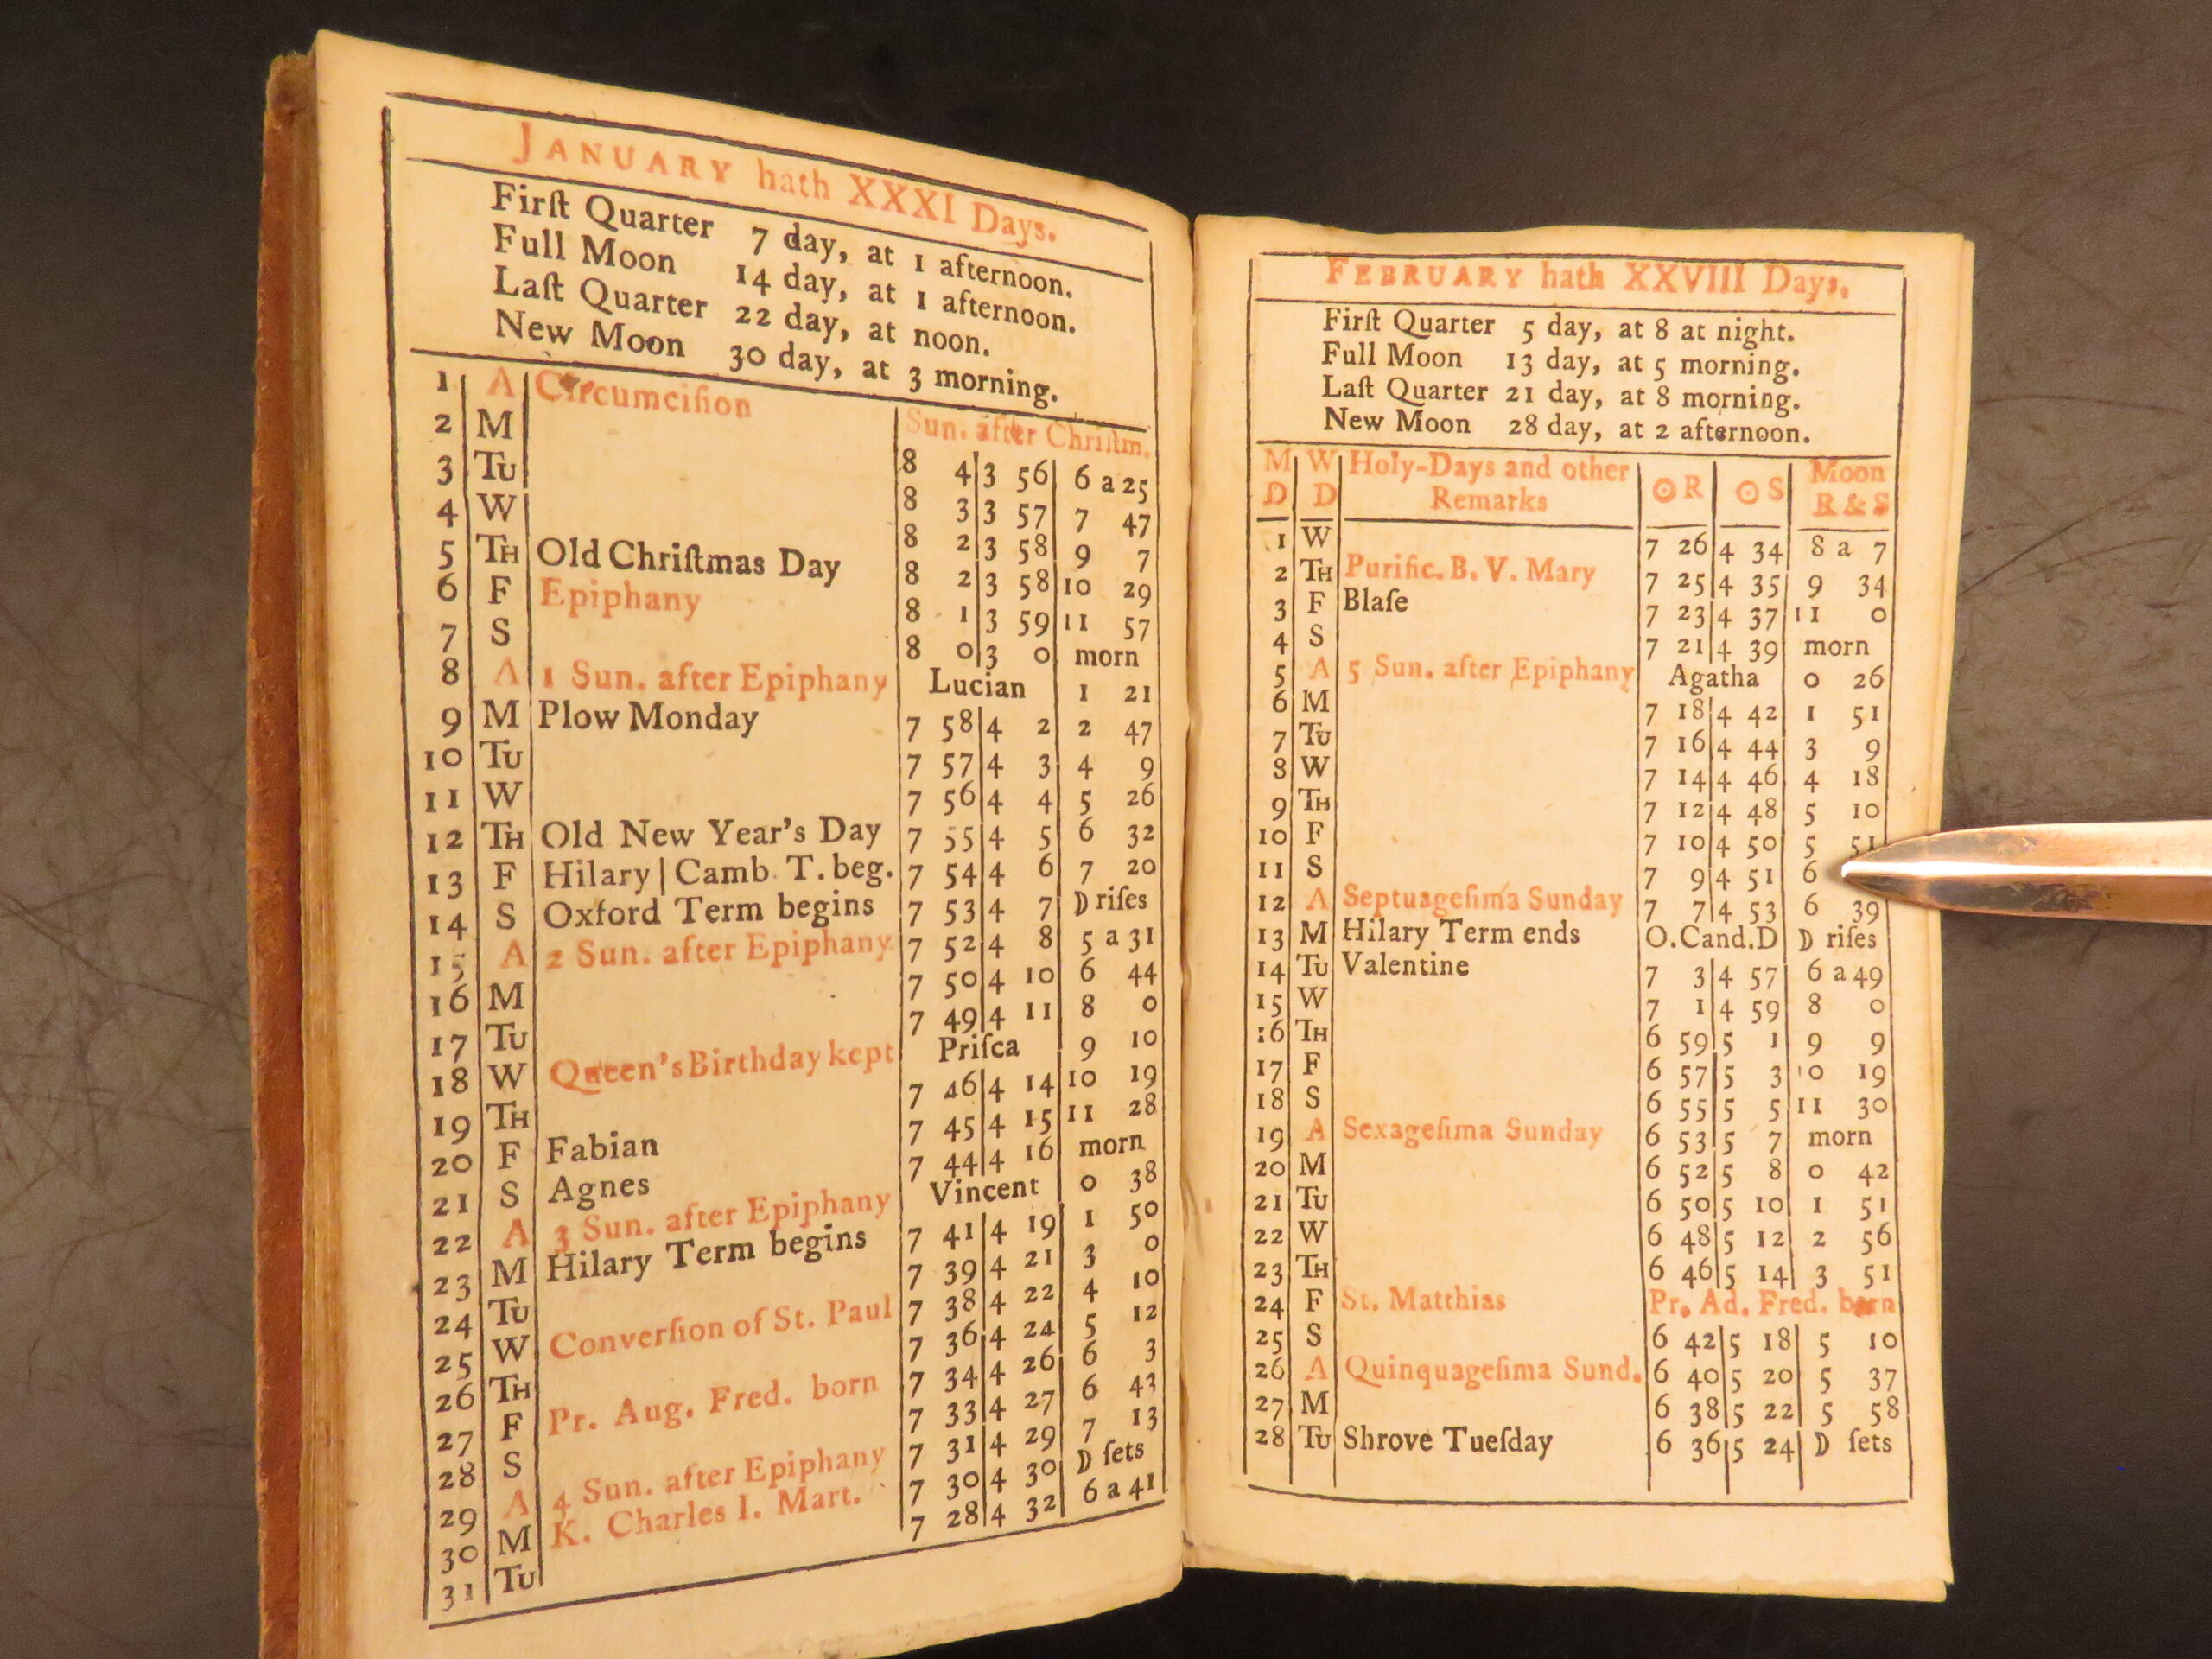 JANUARY hath XXXI Days.
Firſt Quarter 7 day, at 1 afternoon.
Full Moon 14 day, at 1 afternoon.
Laſt Quarter 22 day, at noon.
New Moon 30 day, at 3 morning.
1 A Circumciſion Sun. after Chriſtm.
2 M 8 4 3 56 6 a 25
3 TU 8 3 3 57 7 47
4 W 8 2 3 58 9 7
5 TH Old Chriſtmas Day 8 2 3 58 10 29
6 F Epiphany 8 1 3 59 11 57
7 S 8 0 3 0 morn
8 A 1 Sun. after Epiphany Lucian 1 21
9 M Plow Monday 7 58 4 2 2 47
10 TU 7 57 4 3 4 9
11 W 7 56 4 4 5 26
12 TH Old New Year's Day 7 55 4 5 6 32
13 F Hilary | Camb. T. beg. 7 54 4 6 7 20
14 S Oxford Term begins 7 53 4 7 D riſes
15 A 2 Sun. after Epiphany 7 52 4 8 5 a 31
16 M 7 50 4 10 6 44
17 TU 7 49 4 11 8 0
18 W Queen's Birthday kept Priſca 9 10
19 TH 7 46 4 14 10 19
20 F Fabian 7 45 4 15 11 28
21 S Agnes 7 44 4 16 morn
22 A 3 Sun. after Epiphany Vincent 0 38
23 M Hilary Term begins 7 41 4 19 1 50
24 TU 7 39 4 21 3 0
25 W Converſion of St. Paul 7 38 4 22 4 10
26 TH 7 36 4 24 5 12
27 F Pr. Aug. Fred. born 7 34 4 26 6 3
28 S 7 33 4 27 6 43
29 A 4 Sun. after Epiphany 7 31 4 29 7 13
30 M K. Charles I. Mart. 7 30 4 30 D ſets
31 TU 7 28 4 32 6 a 41
FEBRUARY hath XXVIII Days.
Firſt Quarter 5 day, at 8 at night.
Full Moon 13 day, at 5 morning.
Laſt Quarter 21 day, at 8 morning.
New Moon 28 day, at 2 afternoon.
M W Holy-Days and other ☉ R ☉ S Moon
D D Remarks R & S
1 W 7 26 4 34 8 a 7
2 TH Purific. B. V. Mary 7 25 4 35 9 34
3 F Blaſe 7 23 4 37 11 0
4 S 7 21 4 39 morn
5 A 5 Sun. after Epiphany Agatha 0 26
6 M 7 18 4 42 1 51
7 TU 7 16 4 44 3 9
8 W 7 14 4 46 4 18
9 TH 7 12 4 48 5 10
10 F 7 10 4 50 5 51
11 S 7 9 4 51 6
12 A Septuageſima Sunday 7 7 4 53 6 39
13 M Hilary Term ends O.Cand.D D riſes
14 TU Valentine 7 3 4 57 6 a 49
15 W 7 1 4 59 8 0
16 TH 6 59 5 1 9 9
17 F 6 57 5 3 10 19
18 S 6 55 5 5 11 30
19 A Sexageſima Sunday 6 53 5 7 morn
20 M 6 52 5 8 0 42
21 TU 6 50 5 10 1 51
22 W 6 48 5 12 2 56
23 TH 6 46 5 14 3 51
24 F St. Matthias Pr. Ad. Fred. born
25 S 6 42 5 18 5 10
26 A Quinquageſima Sund. 6 40 5 20 5 37
27 M 6 38 5 22 5 58
28 TU Shrove Tueſday 6 36 5 24 D ſets